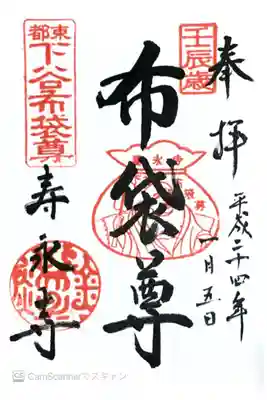 奉拝
平成二十四年
一月五日
壬辰歳
布袋尊
東都
下谷布袋尊
寿永寺
CamScannerでスキャン